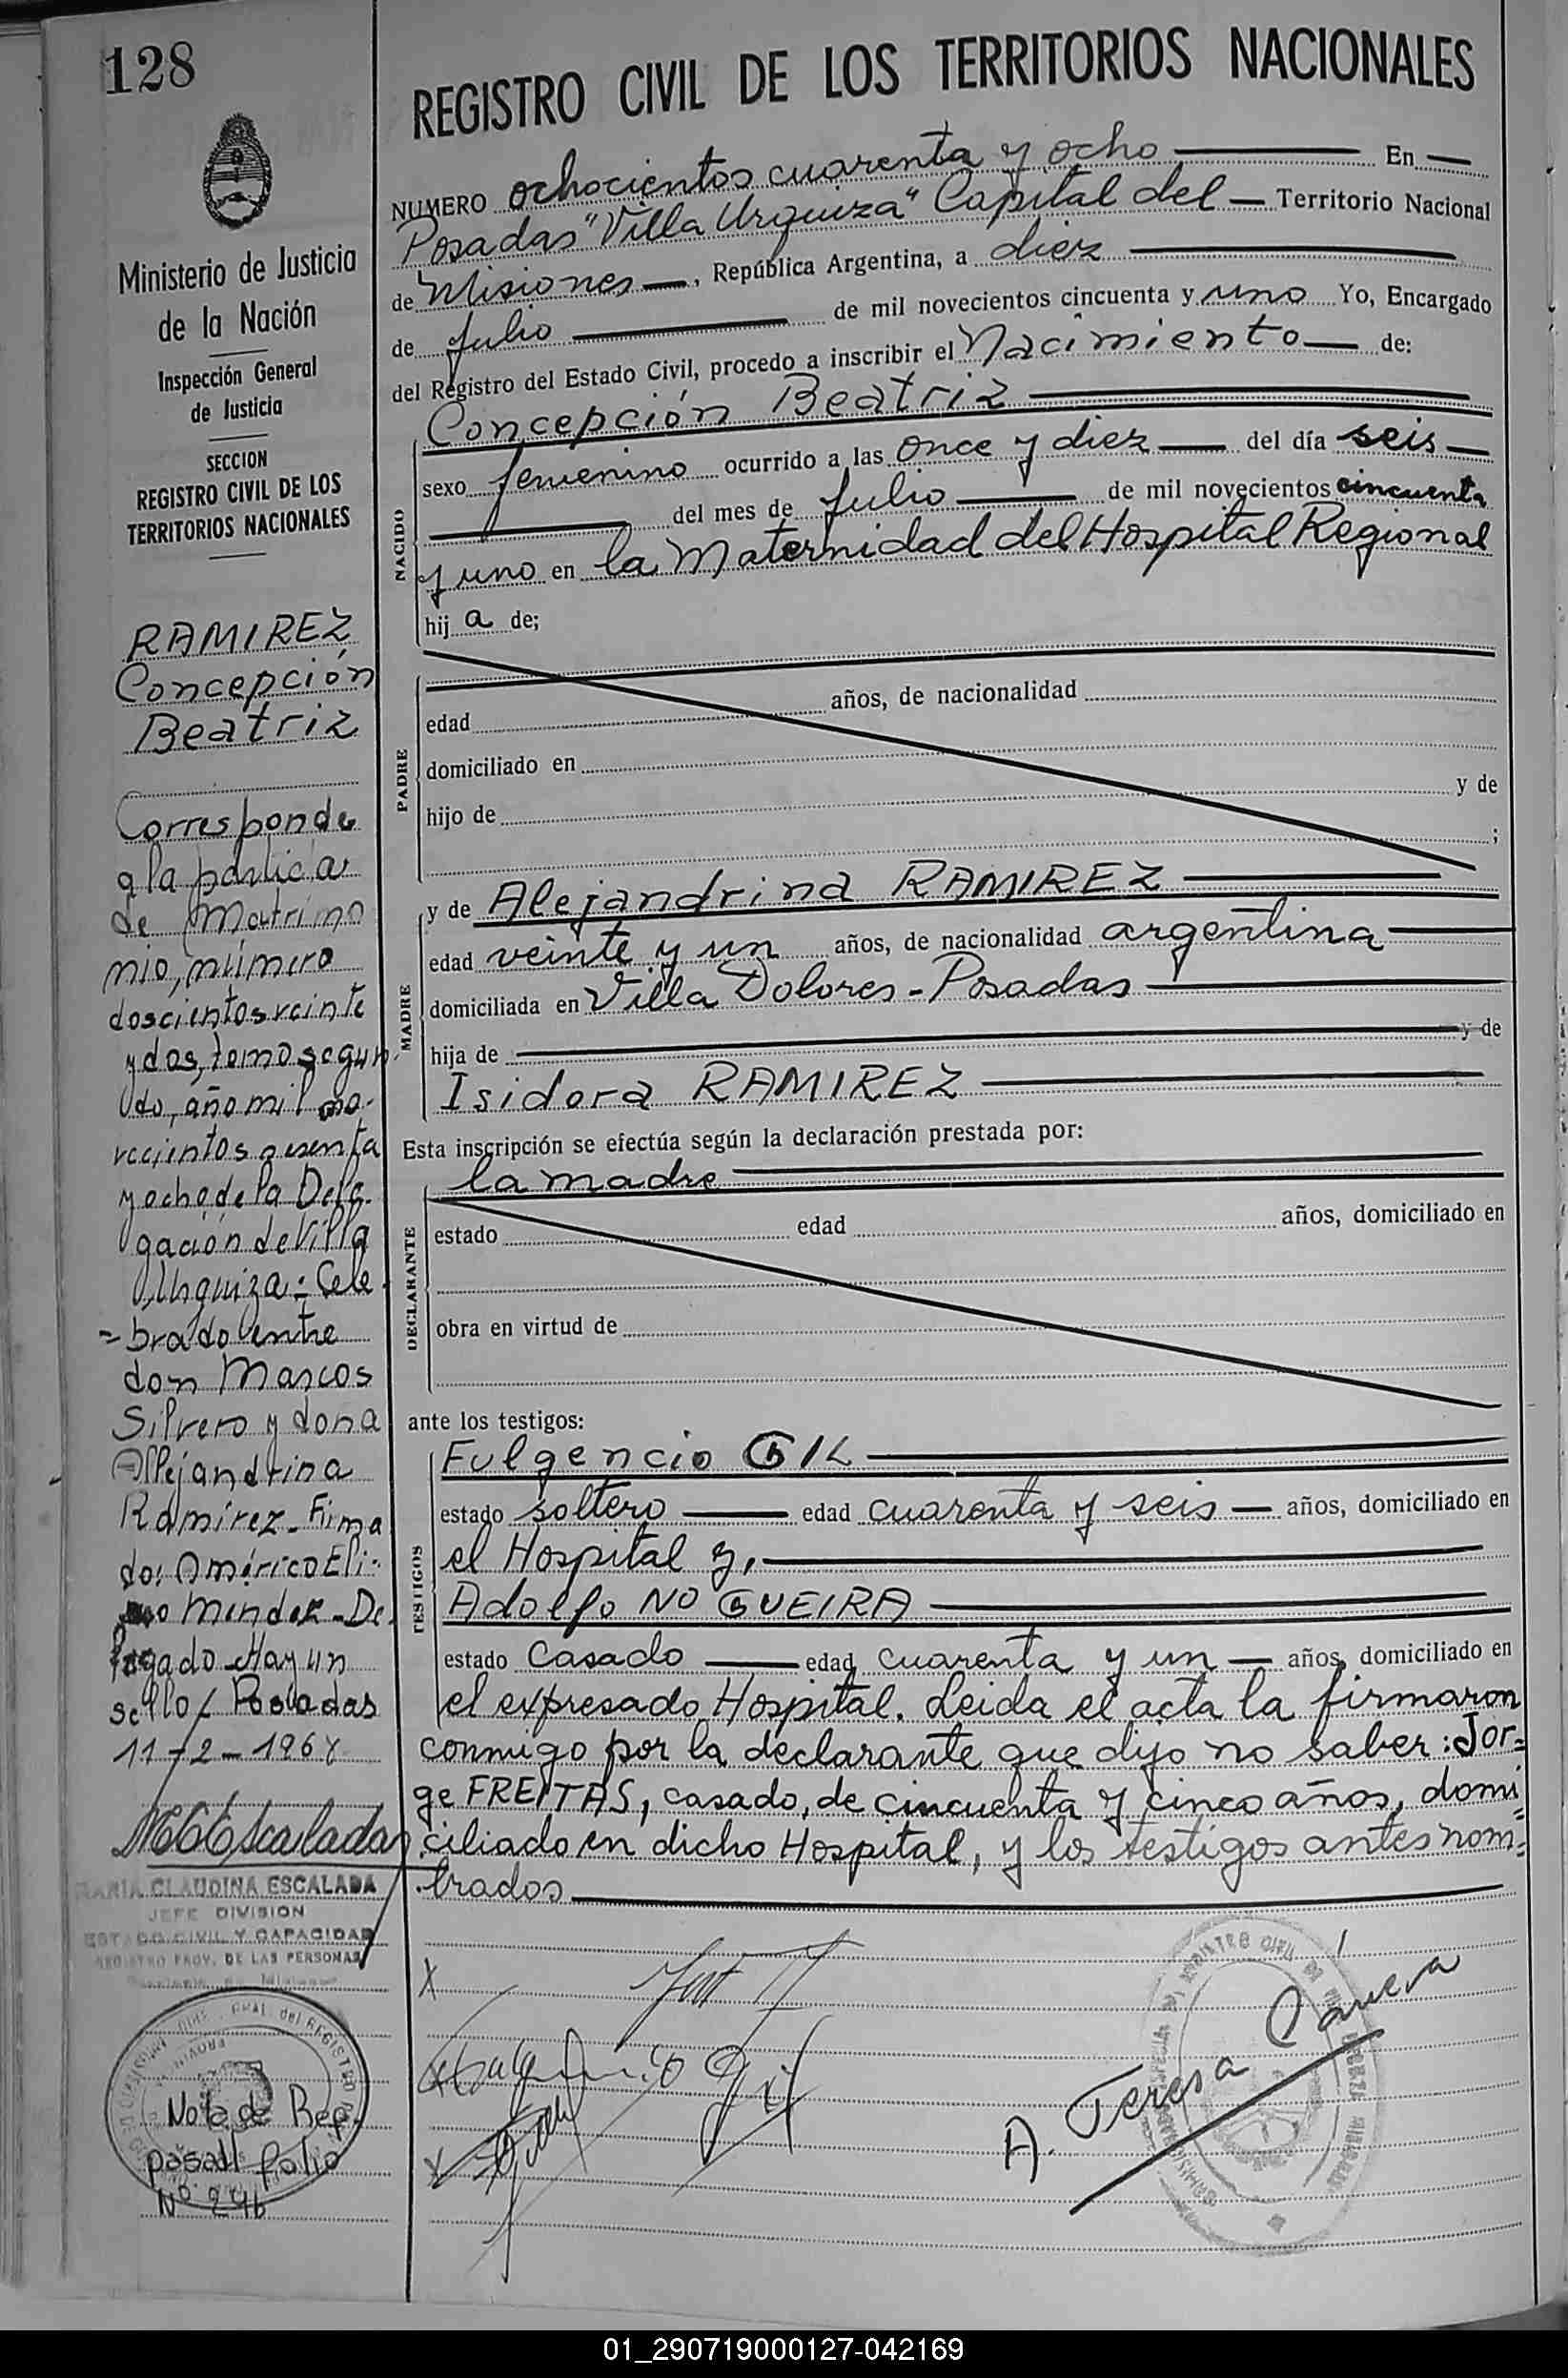 128
Ministerio de Justicia
de la Nación
Inspección General
de Justicia
SECCION
REGISTRO CIVIL DE LOS
TERRITORIOS NACIONALES
RAMIREZ
Concepción
Beatriz
Corresponde
a la partida
de Matrimo
nio, número
doscientos veinte
y dos, tomo segun-
do, año mil no-
vecientos sesenta
y ocho de la Dele-
gación de Villa
Urquiza: Cele
=brado entre
don Marcos
Silvero y dona
Allejandrina
Ramírez - Firma
do: Américo Eli-
Mendez - De
legado Hay un
sello / Posadas
11-2-196
MCCEscalada
MARIA CLAUDINA ESCALADA
JEFE DIVISION
ESTADO CIVIL Y CAPACIDAD
REGISTRO PROV. DE LAS PERSONAS
Nota de Ref.
pasa al folio
Nº 296
REGISTRO CIVIL DE LOS TERRITORIOS NACIONALES
NUMERO ochocientos cuarenta y ocho En
Posadas "Villa Urquiza" Capital del Territorio Nacional
de Misiones, República Argentina, a diez
de Julio de mil novecientos cincuenta y uno Yo, Encargado
del Registro del Estado Civil, procedo a inscribir el Nacimiento de:
Concepción Beatriz
NACIDO
sexo femenino ocurrido a las once y diez del día seis
del mes de Julio de mil novecientos cincuenta
y uno en la Maternidad del Hospital Regional
hij a de;
PADRE
edad años, de nacionalidad
domiciliado en
hijo de y de
;
MADRE
y de Alejandrina RAMIREZ
edad veinte y un años, de nacionalidad argentina
domiciliada en Villa Dolores - Posadas
hija de y de
Isidora RAMIREZ
Esta inscripción se efectúa según la declaración prestada por:
la madre
DECLARANTE
estado edad años, domiciliado en
obra en virtud de
ante los testigos:
TESTIGOS
Fulgencio GIL
estado soltero edad cuarenta y seis años, domiciliado en
el Hospital y,
Adolfo NOGUEIRA
estado Casado edad cuarenta y un años, domiciliado en
el expresado Hospital. Leida el acta la firmaron
conmigo por la declarante que dijo no saber: Jor=
ge FREITAS, casado, de cincuenta y cinco años, domi
ciliado en dicho Hospital, y los testigos antes nom=
brados
X
Fulgencio Gil
A. Teresa
X
01_290719000127-042169